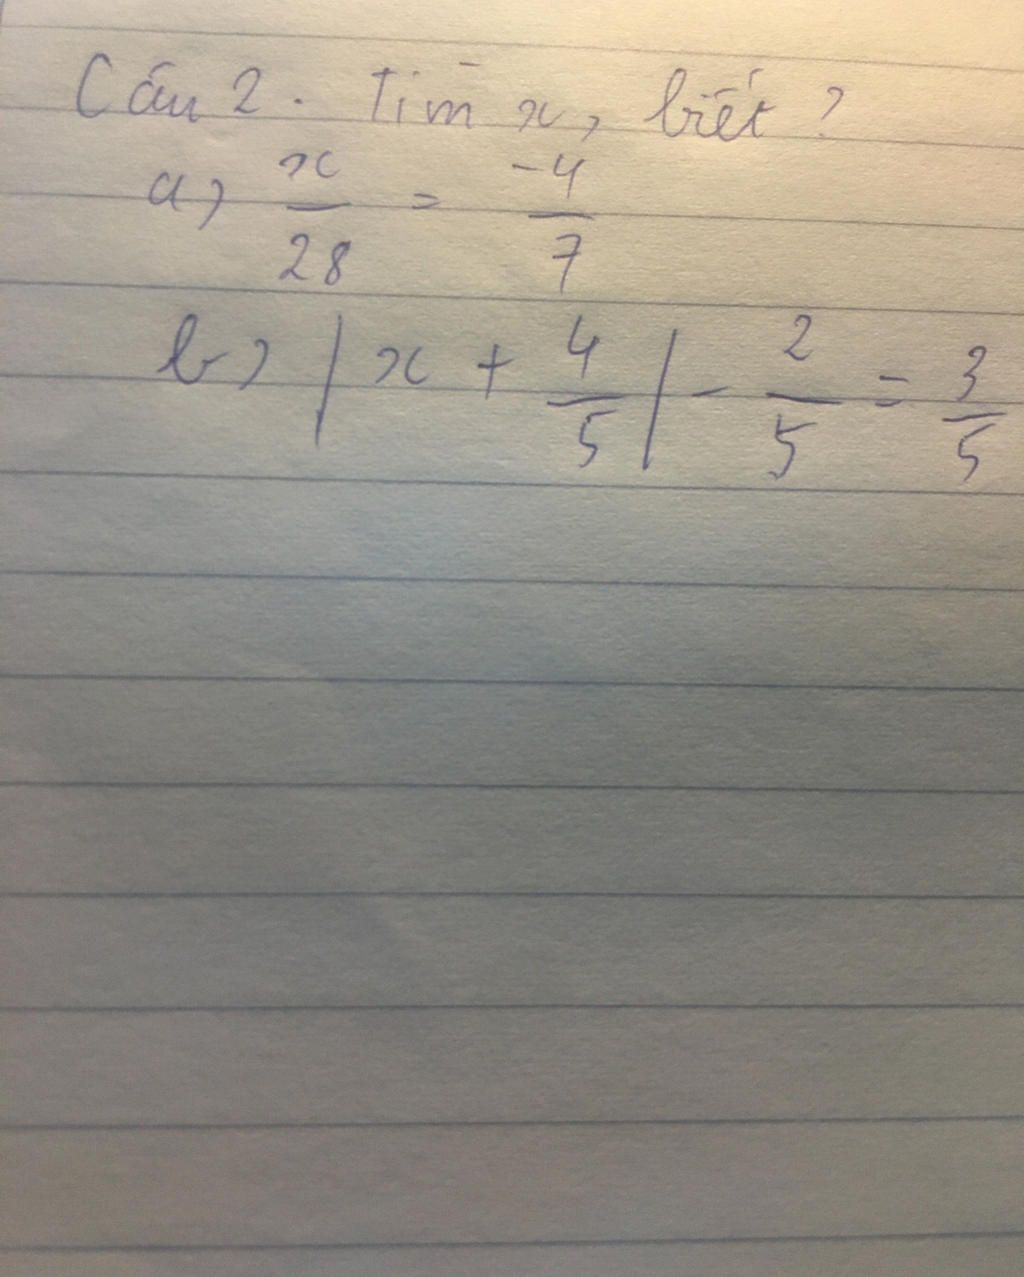 Câu 2. Tìm x, biết ?
a) x/28 = -4/7
b) |x + 4/5| - 2/5 = 3/5